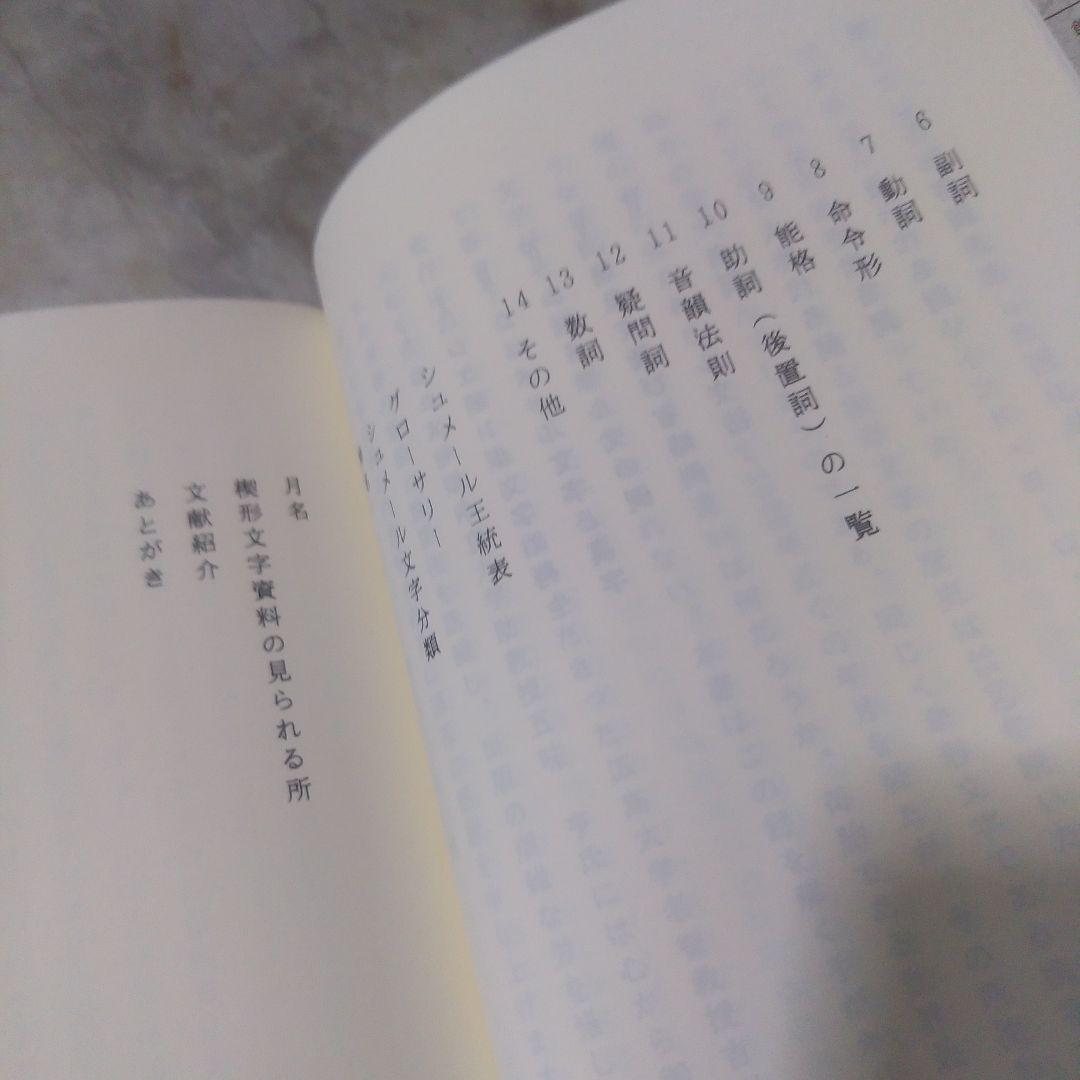 6 副詞
7 動詞
8 命令形
9 能格
10 助詞（後置詞）の一覧
11 音韻法則
12 疑問詞
13 数詞
14 その他
シュメール王統表
グローサリー
シュメール文字分類
月名
楔形文字資料の見られる所
文献紹介
あとがき